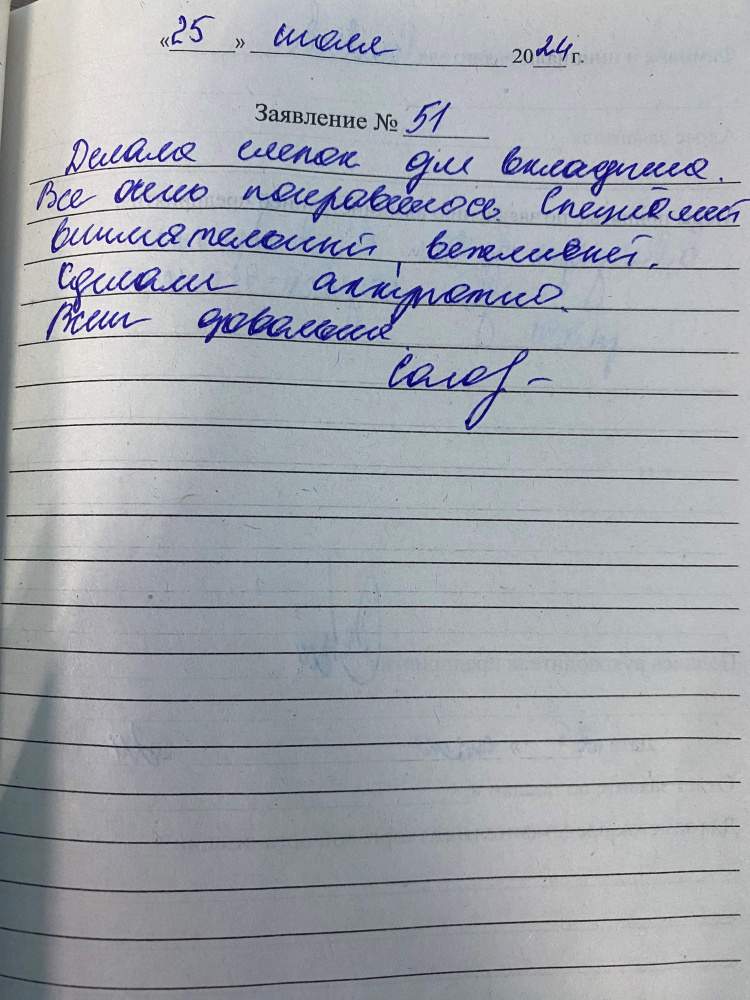 «25» июля 2024 г.
Заявление № 51
Делала слепок для вкладыша.
Все очень понравилось. Специалист
внимательный, вежливый.
Сделали аккуратно.
Всем довольна